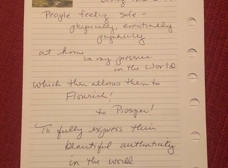 People feeling safe -
physically, emotionally
at home
in my presence
in the World
which then allows them to
Flourish!
to Prosper!
To fully express their
beautiful authenticity
in the world